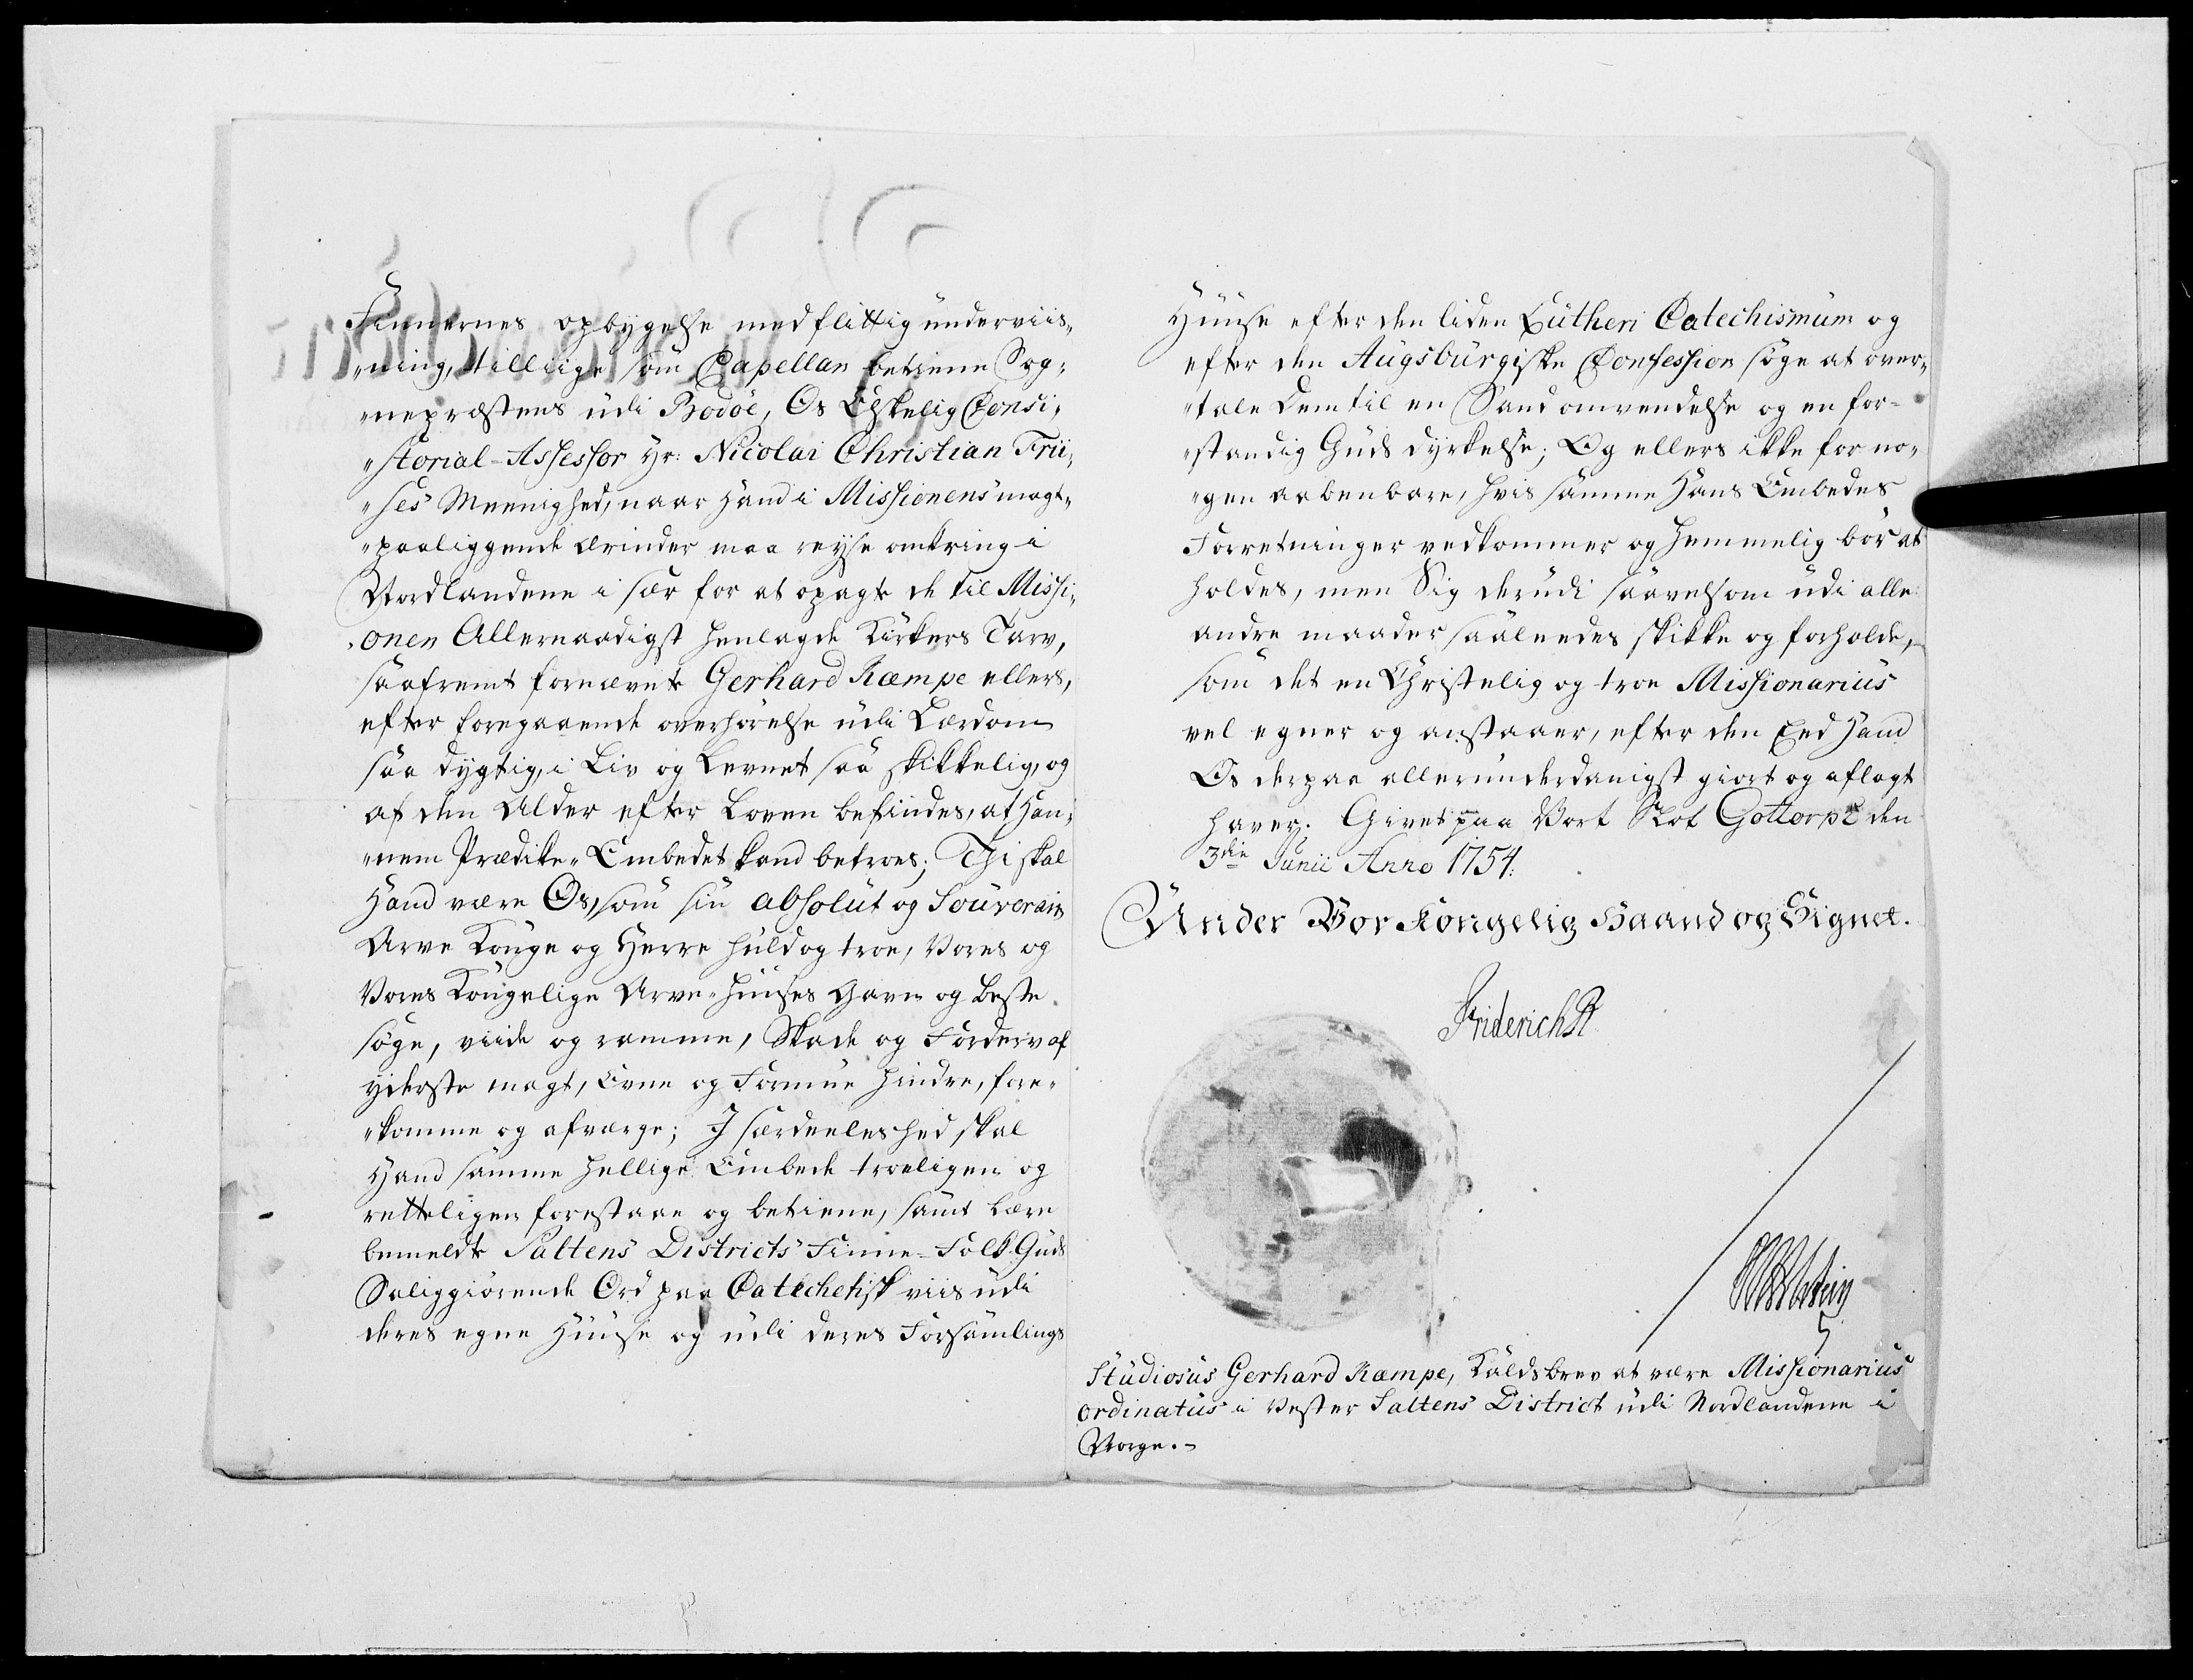 Finnernes opbygelse med flittig underviis„
„ning, tilliige som Capellan betiene Sog„
„nepræstens udi Bodöe, Os Elskelig Consi„
„storial-Assessor Hr: Nicolai Christian Frii„
„ses Meenighed, naar Hand i Missionens magt„
„paaliggende Ærinder maa reyse omkring i
Nordlandene i sær for at opagte de til Missi„
„onen Allernaadigst henlagde Kirkers Tarv,
saafremt fornævnte Gerhard Kæmpe ellers,
efter foregaaende overhörelse udi Lærdom
saa dygtig, i Liv og Levnet saa skikkelig, og
af den Alder efter Loven befindes, at Han„
„nem Prædike„Embedet kand betroes; Thi skal
Hand være Os, som sin absolut og Souverain
Arve Konge og Herre huld og troe, Vores og
Vores Kongelige Arve„Huuses Gavn og beste
söge, viide og ramme, Skade og Forderv af
yderste magt, Evne og Formue hindre, fore„
„komme og afværge; I særdeeleshed skal
Hand samme hellige Embede troeligen og
retteligen forestaae og betiene, samt Lære
bemeldte Saltens Districts Finne-Folk Guds
Saliggiörende Ord paa Catechetisk viis udi
deres egne Huuse og udi deres Forsamlings
Huuse efter den liden Lutheri Catechismum og
efter den Augsburgiske Confession söge at over„
„tale dem til en Sand omvendelse og en for-
„standig Guds dyrkelse; Og ellers ikke for no„
„gen aabenbare, hvis samme Hans Embedes
Forretninger vedkommer og hemmelig bör at
holdes, men Sig derudi saavelsom udi alle
andre maader saaleedes skikke og forholde,
som det en Christelig og troe Missionarius
vel egner og anstaaer, efter den Eed Hand
Os derpaa allerunderdanigst giort og aflagt
haver. Givet paa Vort Slot Gottorp den
3die Junii Anno 1754.
Under Vor Kongelig Haand og Signet.
Friderich R
Studiosus Gerhard Kæmpe, Kaldsbrev at være Missionarius
ordinatus i Vester Saltens District udi Nordlandene i
Norge.-